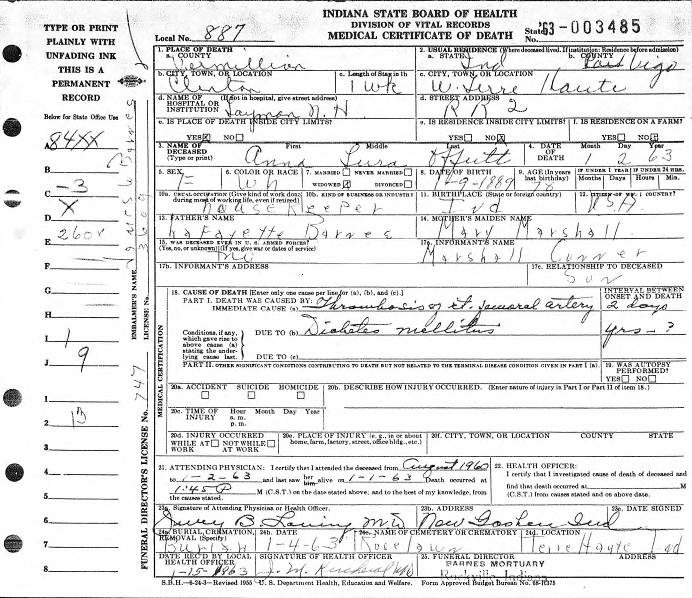 INDIANA STATE BOARD OF HEALTH
DIVISION OF VITAL RECORDS
MEDICAL CERTIFICATE OF DEATH
Local No. 887
State No. '63-003485
TYPE OR PRINT
PLAINLY WITH
UNFADING INK
THIS IS A
PERMANENT
RECORD
Below for State Office Use
A 84XX
B
C -3
D X
E 260x
F
G
H
I 1
J 9
1
2 13
3
4
5
6
7
8
EMBALMER'S NAME James W Barnes LICENSE No. 3609
FUNERAL DIRECTOR'S LICENSE No. 747
MEDICAL CERTIFICATION
1. PLACE OF DEATH
a. COUNTY
Vermillion
2. USUAL RESIDENCE (Where deceased lived. If institution: Residence before admission)
a. STATE Ind b. COUNTY Vigo
b. CITY, TOWN, OR LOCATION
Clinton
c. Length of Stay in 1b
1 wk
c. CITY, TOWN, OR LOCATION
W. Terre Haute
d. NAME OF (If not in hospital, give street address)
HOSPITAL OR
INSTITUTION N. H
d. STREET ADDRESS
R R 2
e. IS PLACE OF DEATH INSIDE CITY LIMITS?
YES NO
e. IS RESIDENCE INSIDE CITY LIMITS?
YES NO
f. IS RESIDENCE ON A FARM?
YES NO
3. NAME OF DECEASED
(Type or print)
First Middle Last
Anna Offutt
4. DATE OF DEATH
Month Day Year
2 63
5. SEX
F
6. COLOR OR RACE
Wh
7. MARRIED NEVER MARRIED
WIDOWED DIVORCED
8. DATE OF BIRTH
9-1889
9. AGE (In years last birthday)
IF UNDER 1 YEAR
IF UNDER 24 HRS.
10a. USUAL OCCUPATION (Give kind of work done during most of working life, even if retired)
House Keeper
10b. KIND OF BUSINESS OR INDUSTRY
11. BIRTHPLACE (State or foreign country)
Ind
12. CITIZEN OF WHAT COUNTRY?
USA
13. FATHER'S NAME
LaFayette Barnes
14. MOTHER'S MAIDEN NAME
Mary Marshall
15. WAS DECEASED EVER IN U. S. ARMED FORCES?
(Yes, no, or unknown) (If yes, give war or dates of service)
17a. INFORMANT'S NAME
Marshall Conner
17b. INFORMANT'S ADDRESS
17c. RELATIONSHIP TO DECEASED
Son
18. CAUSE OF DEATH (Enter only one cause per line for (a), (b), and (c).)
PART I. DEATH WAS CAUSED BY:
IMMEDIATE CAUSE (a) Thrombosis of rt. femoral artery
INTERVAL BETWEEN ONSET AND DEATH
2 days
Conditions, if any, which gave rise to above cause (a) stating the underlying cause last.
DUE TO (b) Diabetes mellitus yrs-?
DUE TO (c)
PART II. OTHER SIGNIFICANT CONDITIONS CONTRIBUTING TO DEATH BUT NOT RELATED TO THE TERMINAL DISEASE CONDITION GIVEN IN PART I (a).
19. WAS AUTOPSY PERFORMED?
YES NO
20a. ACCIDENT SUICIDE HOMICIDE
20b. DESCRIBE HOW INJURY OCCURRED. (Enter nature of injury in Part I or Part II of item 18.)
20c. TIME OF INJURY Hour Month Day Year
a. m.
p. m.
20d. INJURY OCCURRED
WHILE AT WORK NOT WHILE AT WORK
20e. PLACE OF INJURY (e. g., in or about home, farm, factory, street, office bldg., etc.)
20f. CITY, TOWN, OR LOCATION COUNTY STATE
21. ATTENDING PHYSICIAN: I certify that I attended the deceased from August 1960
to 1-2-63 and last saw her/him alive on 1-1-63 Death occurred at
1:45 P M (C.S.T.) on the date stated above; and to the best of my knowledge, from the causes stated.
22. HEALTH OFFICER:
I certify that I investigated cause of death of deceased and find that death occurred at M (C.S.T.) from causes stated and on above date.
23a. Signature of Attending Physician or Health Officer
M.D.
23b. ADDRESS
New Goshen Ind
23c. DATE SIGNED
24a. BURIAL, CREMATION, REMOVAL (Specify)
Burial
24b. DATE
1-4-63
24c. NAME OF CEMETERY OR CREMATORY
Roselawn
24d. LOCATION
Terre Haute Ind
DATE REC'D BY LOCAL HEALTH OFFICER
1-15-1963
SIGNATURE OF HEALTH OFFICER
25. FUNERAL DIRECTOR
BARNES MORTUARY
Rockville Indiana
S.B.H.—6-24-3—Revised 1955 U. S. Department Health, Education and Welfare. Form Approved Budget Bureau No. 68-R375